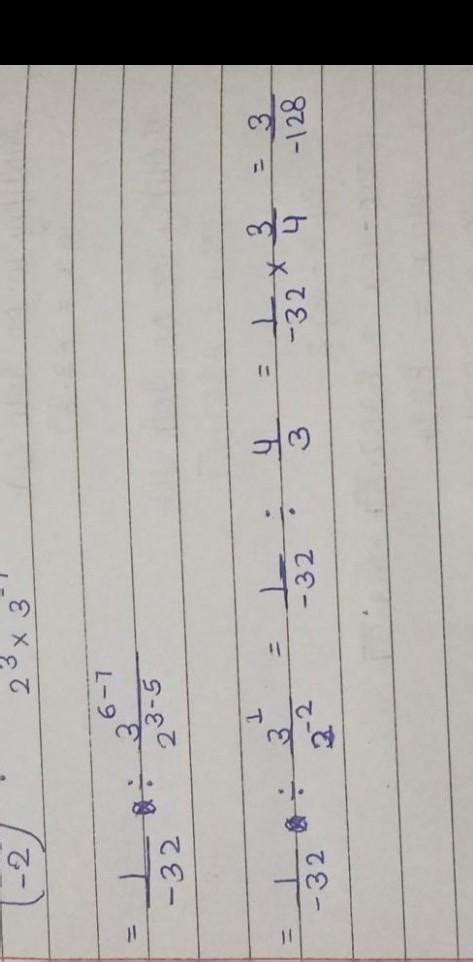 (-2) 2³ × 3
= 1/-32 ÷ 3⁶⁻⁷/2³⁻⁵
= 1/-32 ÷ 3¹/2⁻² = 1/-32 ÷ 4/3 = 1/-32 × 3/4 = 3/-128